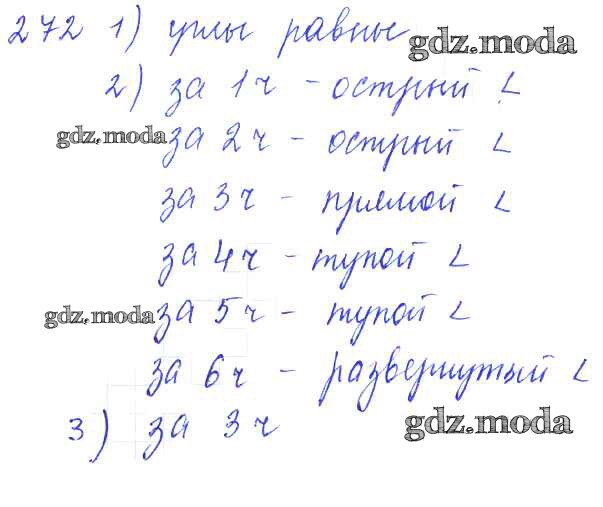 272 1) углы равные
gdz.moda
2) за 1ч - острый ∠
gdz.moda
за 2ч - острый ∠
за 3ч - прямой ∠
за 4ч - тупой ∠
gdz.moda
за 5ч - тупой ∠
за 6ч - развернутый ∠
3) за 3ч
gdz.moda